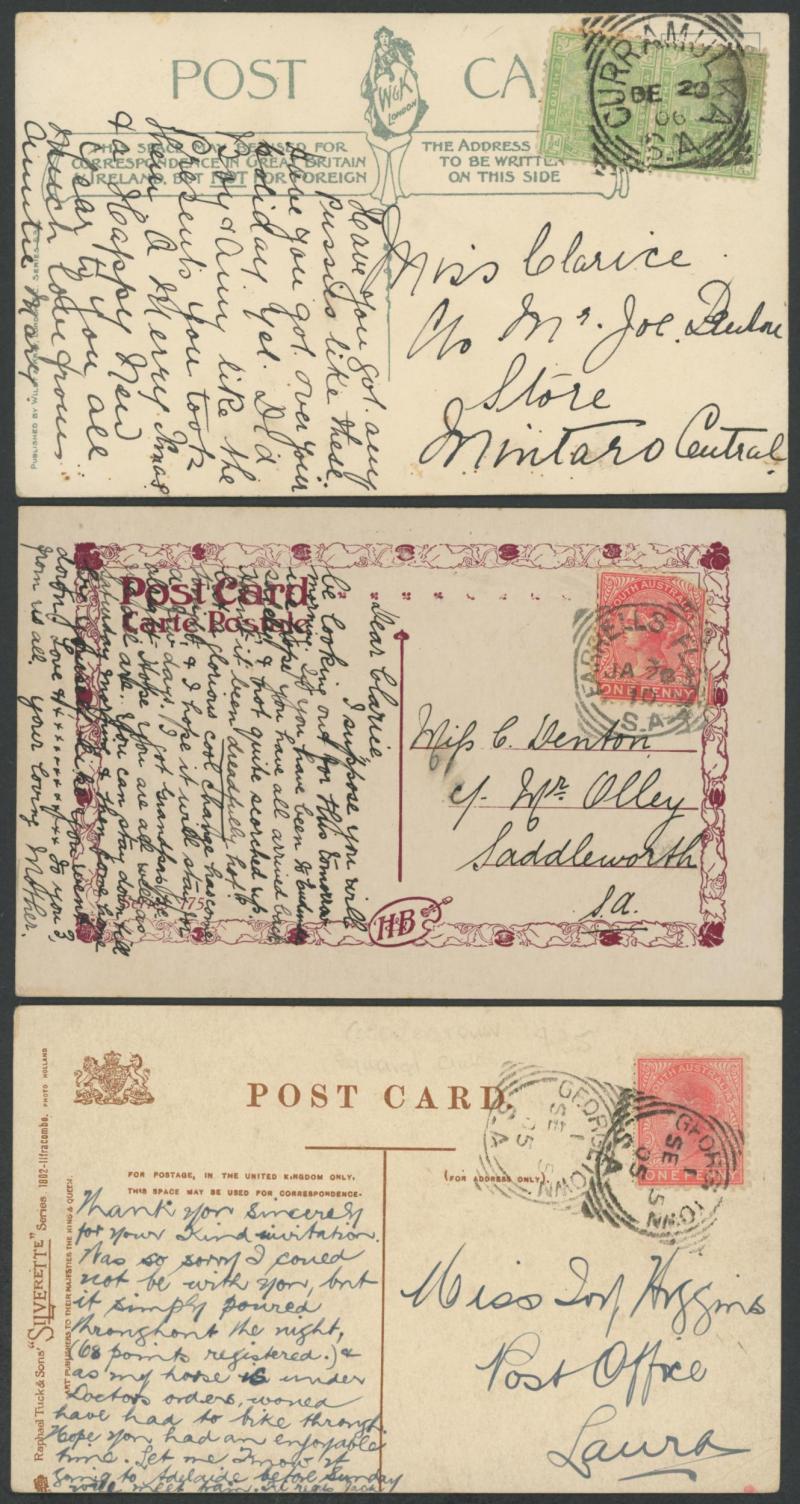 POST CARD
W & K
LONDON
CURRAMULKA
DE 20
06
S.A
THIS SPACE MAY BE USED FOR
CORRESPONDENCE IN GREAT BRITAIN
& IRELAND, BUT NOT FOR FOREIGN
THE ADDRESS
TO BE WRITTEN
ON THIS SIDE
Have you got any
Pussies like these.
Have you got over your
holiday yet. Did
Amy like the
presents you took
them A Merry Xmas
& a Happy New
Year to you all
Much love from
Auntie Mary.
Miss Clarice
C/o Mr. Joe. Denton
Store
Mintaro Central
PUBLISHED BY
Post Card
Carte Postale
SOUTH AUSTRALIA
ONE PENNY
FARRELLS FLAT
JA 28
10
S.A
Dear Clarice
I suppose you will
be looking out for this tomorrow
morning if you have been to
I hope you have all arrived back
safely & not quite scorched up.
Hasn't it been dreadfully hot?
But a glorious cool change has come
tonight, & I hope it will stay for
a few days. I got Grandpa's
Hope you are all well as
we are. You can stay down till
Saturday morning & then come home
down. Love & xxxxxxxx to you 3
from us all. Your loving Mother.
Miss C. Denton
c/- Mr. Olley
Saddleworth
S.A.
H B
POST CARD.
SOUTH AUSTRALIA
ONE PENNY
GEORGETOWN
SE 1
05
S.A
GEORGETOWN
SE 1
05
S.A
FOR POSTAGE, IN THE UNITED KINGDOM ONLY,
THIS SPACE MAY BE USED FOR CORRESPONDENCE.
(FOR ADDRESS ONLY)
Thank you sincerely
for your kind invitation.
Was so sorry I could
not be with you, but
it simply poured
throughout the night,
(68 points registered.) &
as my horse is under
Doctors orders, would
have had to bike through.
Hope you had an enjoyable
time. Let me know if
going to Adelaide before Sunday
will meet train.
Miss Ivy Higgins
Post Office
Laura
Raphael Tuck & Sons' "SILVERETTE" Series 1802-Ilfracombe. PHOTO HOLLAND
ART PUBLISHERS TO THEIR MAJESTIES THE KING & QUEEN.